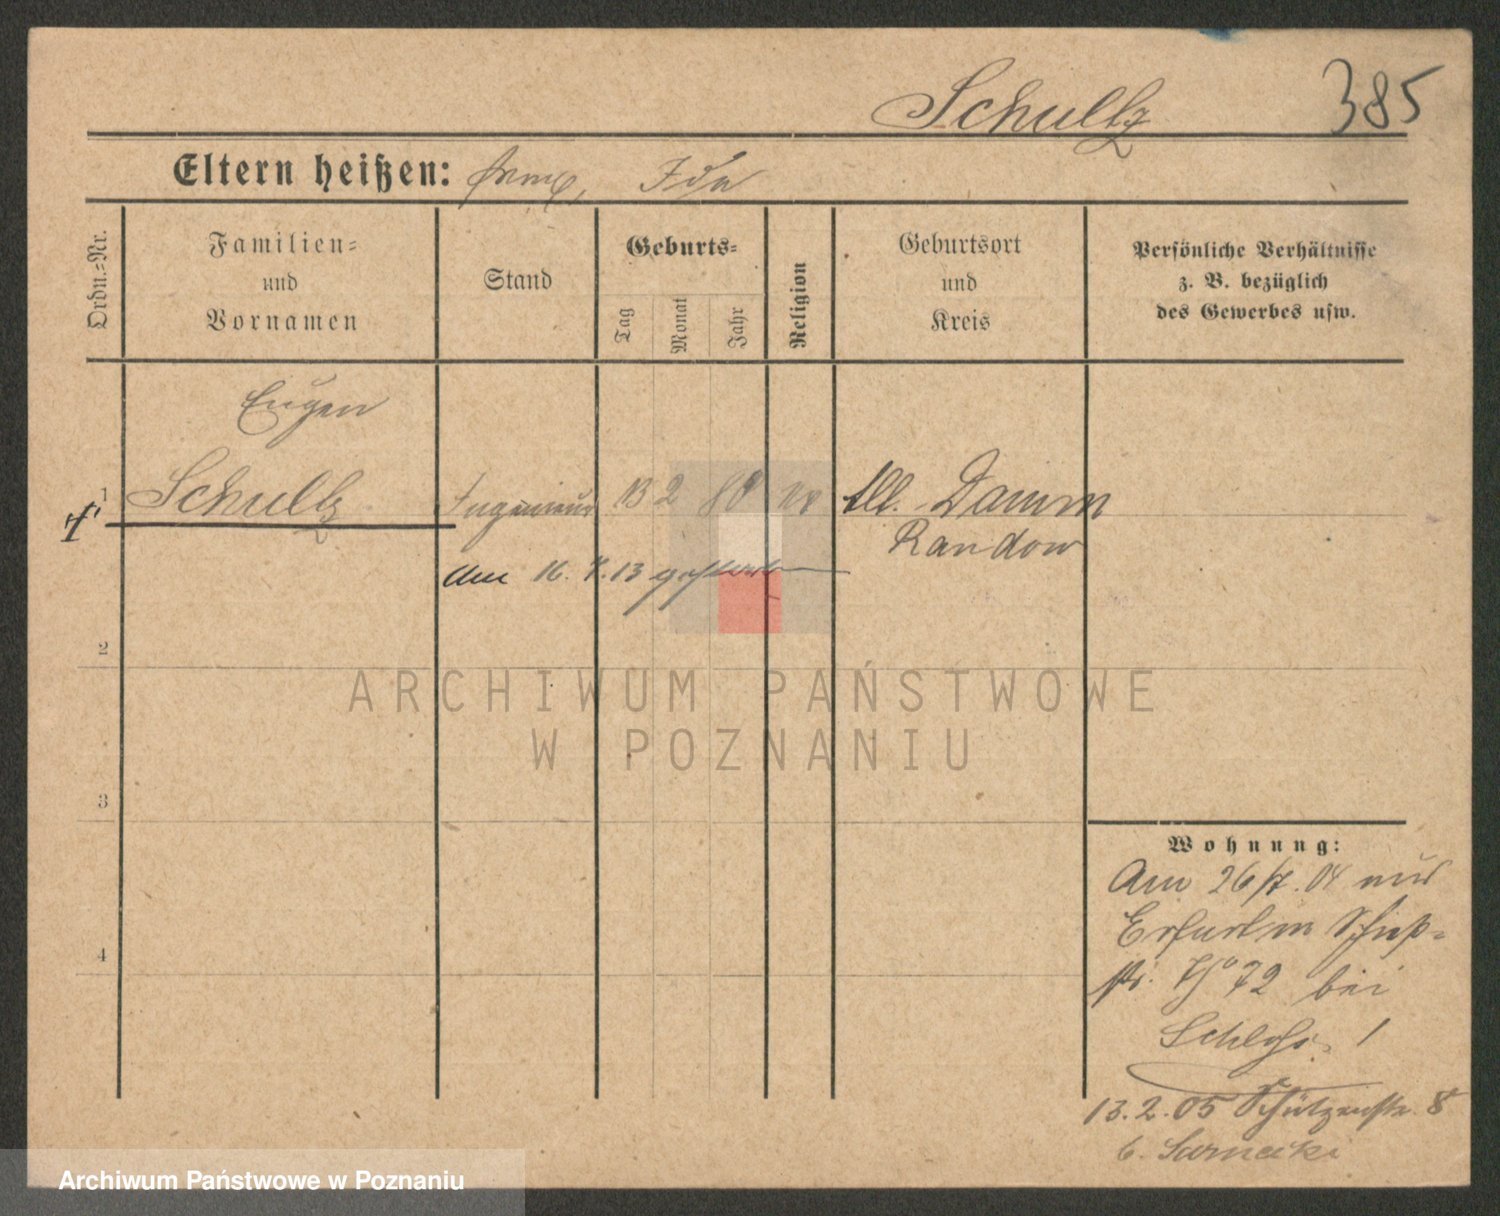 Schultz 385
Eltern heißen: Franz, Ida
Ordn.=Nr.
Familien=
und
Vornamen
Stand
Geburts=
Tag
Monat
Jahr
Religion
Geburtsort
und
Kreis
Persönliche Verhältnisse
z. B. bezüglich
des Gewerbes usw.
Eugen
1 Schultz Ingenieur 13 2 80 ev Alt. Damm
Randow
Am 16. 7. 13 gestorben
2
ARCHIWUM PAŃSTWOWE
W POZNANIU
3
4
Wohnung:
Am 26/7. 04 aus
Erfurt in Schieß=
str. No 72 bei
13.2.05 Schützenstr. 8
b. Sarnecki
Archiwum Państwowe w Poznaniu